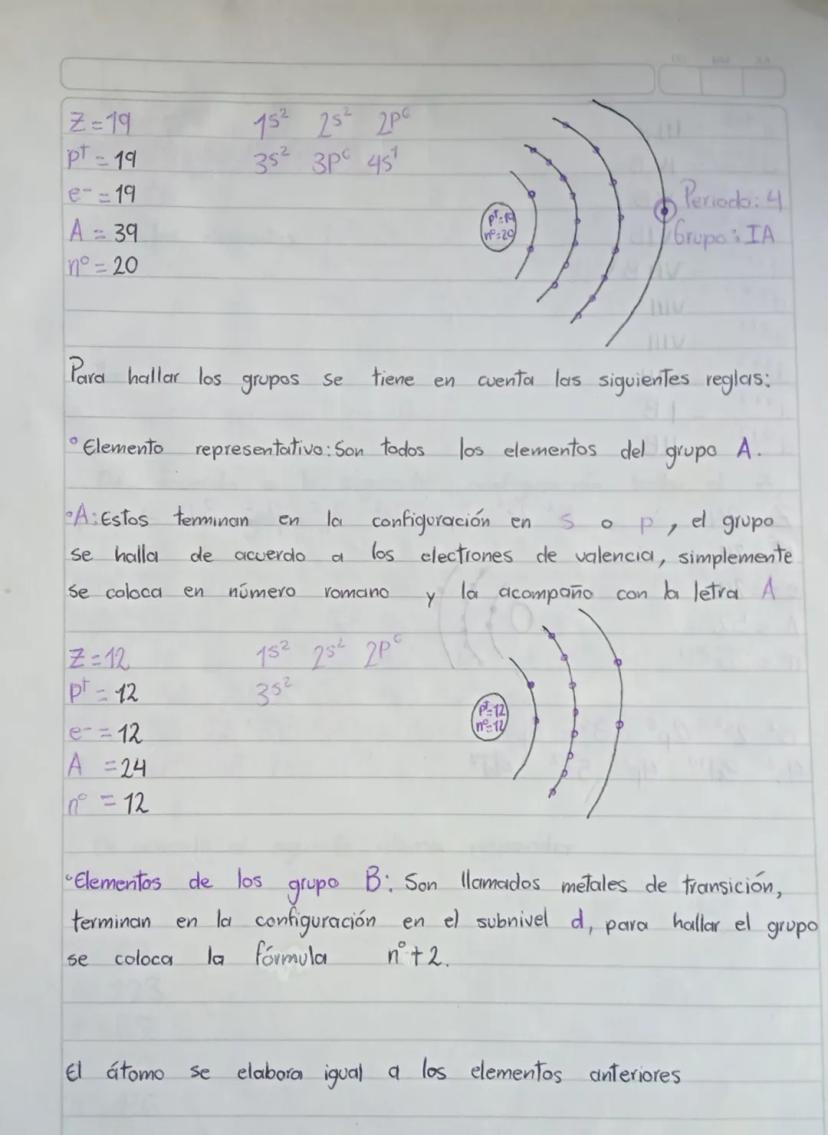 Z = 19 1s² 2s² 2p⁶
p⁺ = 19 3s² 3p⁶ 4s¹
e⁻ = 19
A = 39
n° = 20
p⁺=19
n°=20
Periodo: 4
Grupo: IA
Para hallar los grupos se tiene en cuenta las siguientes reglas:
° Elemento representativo: Son todos los elementos del grupo A.
° A: Estos terminan en la configuración en s o p, el grupo
se halla de acuerdo a los electrones de valencia, simplemente
se coloca en número romano y la acompaño con la letra A
Z = 12 1s² 2s² 2p⁶
p⁺ = 12 3s²
e⁻ = 12
A = 24
n° = 12
p⁺=12
n°=12
° Elementos de los grupo B: Son llamados metales de transición,
terminan en la configuración en el subnivel d, para hallar el grupo
se coloca la fórmula n° + 2.
El átomo se elabora igual a los elementos anteriores